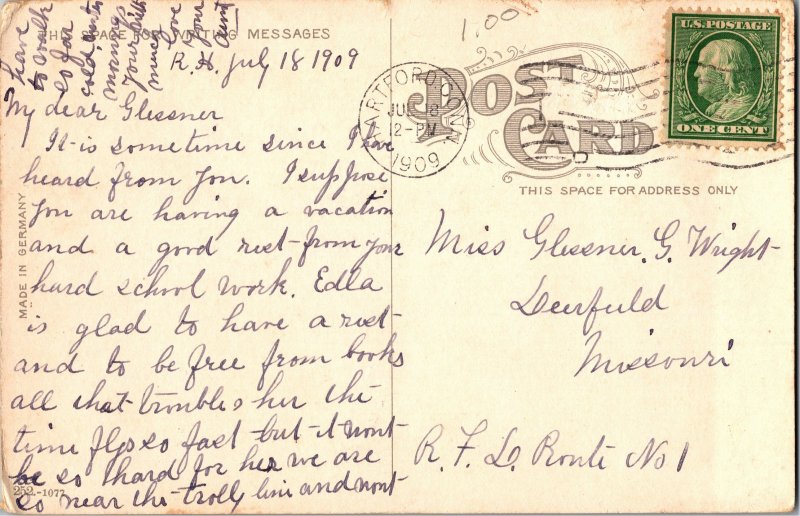 1.00
THIS SPACE FOR WRITING MESSAGES
R.H. July 18 1909
My dear Glessner
It is some time since I have
heard from you. I suppose
you are having a vacation
and a good rest from your
hard school work. Edla
is glad to have a rest
and to be free from books
all that troubles her the
time flys so fast but it wont
be so hard for her we are
so near the trolly line and wont
have
to walk
so far
cold
mornings
your
much
Love
your
Aunt
MADE IN GERMANY
252.-1077
HARTFORD CONN
JUL 18
12-PM
1909
POST
CARD
THIS SPACE FOR ADDRESS ONLY
U.S. POSTAGE
ONE CENT
Miss Glessner. G. Wright
Deerfield
Missouri
R. F. D. Route No 1